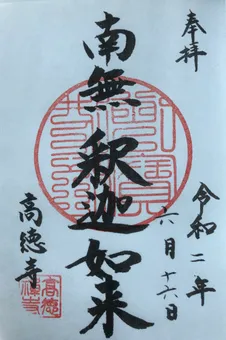 奉拝
令和二年
六月十六日
南無釈迦如来
高徳寺